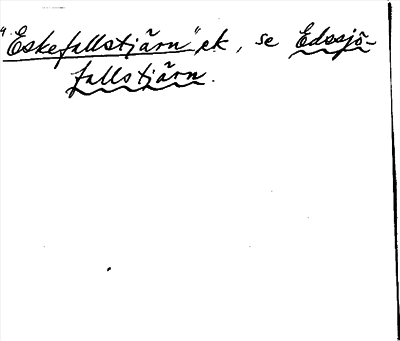 "Eskefallstjärn" ek, se Edssjö-
fallstjärn.